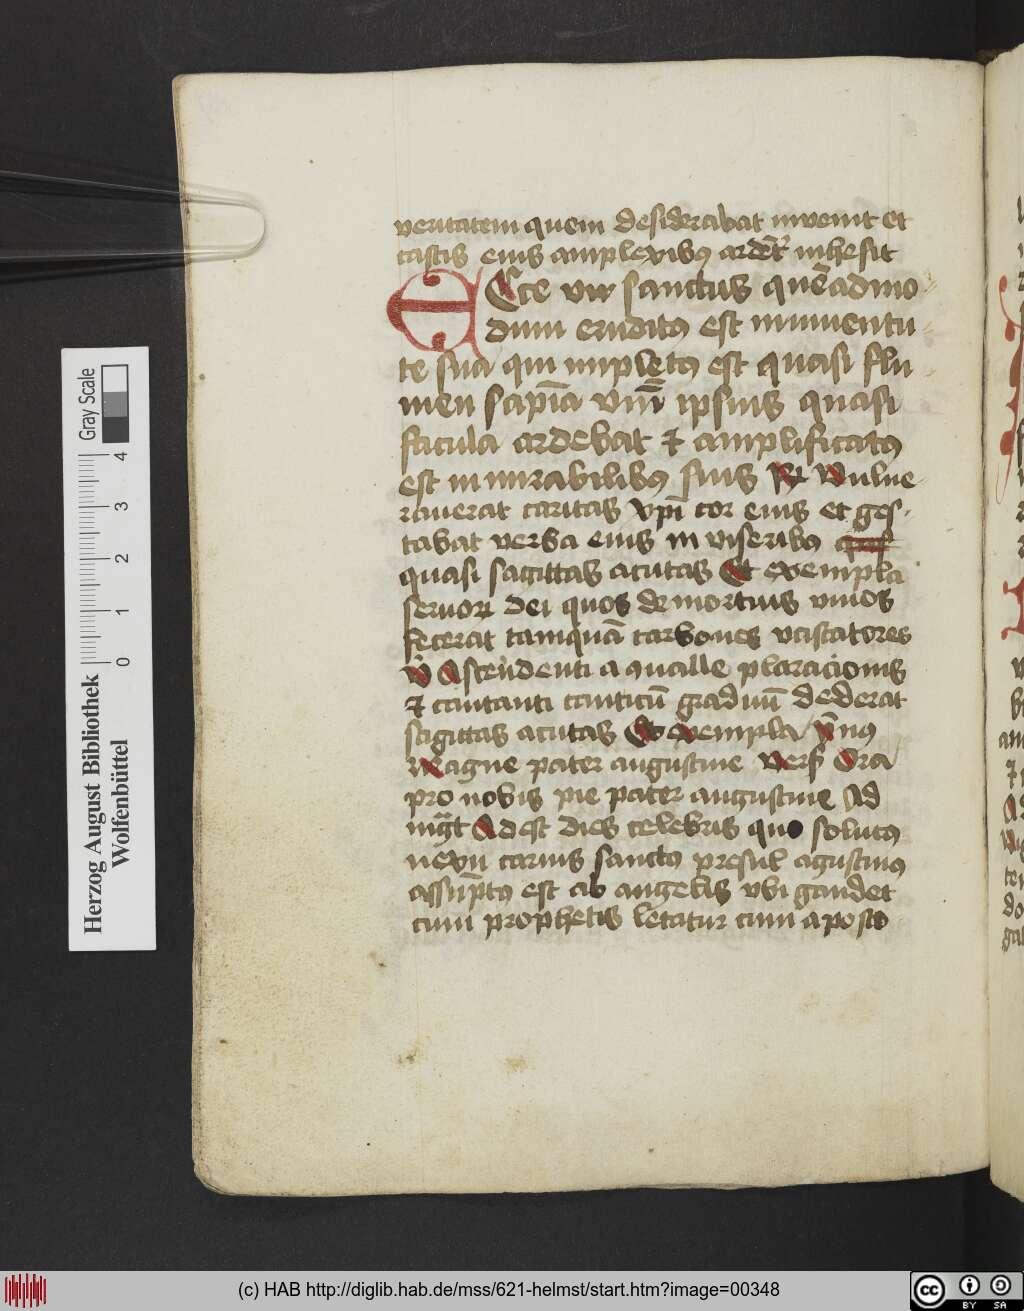 veritatem quem desiderabat invenit et
castis eius amplexibꝰ ardēt᷑ inhesit
Ecce vir sanctus quēadmo
dum eruditꝰ est in iuventu
te sua qui impletꝰ est quasi flu
men sapīa vīm̄ ipsius quasi
facula ardebat ⁊ amplificatꝰ
est in mirabilibꝰ suis Rͬ Wlne
raverat caritas xpī cor eius et ges
tabat verba eius in viseribꝰ
quasi sagittas acutas Et exempla
servoꝝ dei quos de mortuis vivos
fecerat tamquā carbones vastatores
V̊ Ascendenti a qualle ploracionis
⁊ cantanti canticū graduū dederat
sagittas acutas Et exempla ẏmnꝰ
Magne pater augustine vers Ora
pro nobis pie pater augustine Ad
mgͣt Adest dies celebris quo solutꝰ
nexu carnis sanctꝰ presul agustinꝰ
assūptꝰ est cū angelis vbi gaudet
cum prophetis letatur cum aposto
Herzog August Bibliothek
Wolfenbüttel
Gray Scale
0 1 2 3 4
(c) HAB http://diglib.hab.de/mss/621-helmst/start.htm?image=00348
cc BY SA